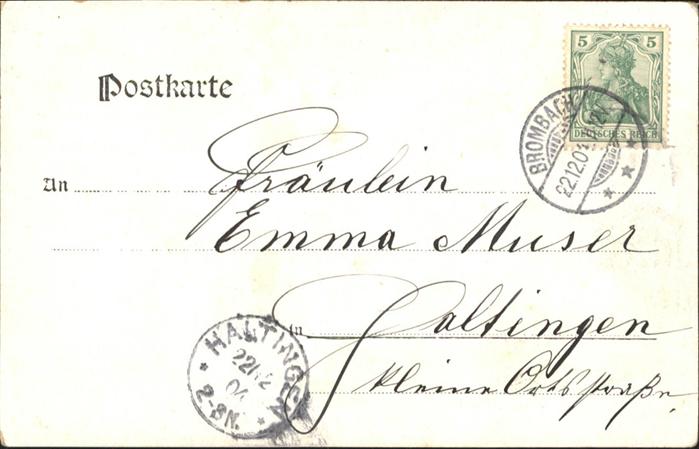 5 5
DEUTSCHES REICH
Postkarte
BROMBACH
22.12.04
An Fräulein
Emma Muser
in Haltingen
kleine Ortsstraße
HALTINGEN
22/12
04
2-3N.